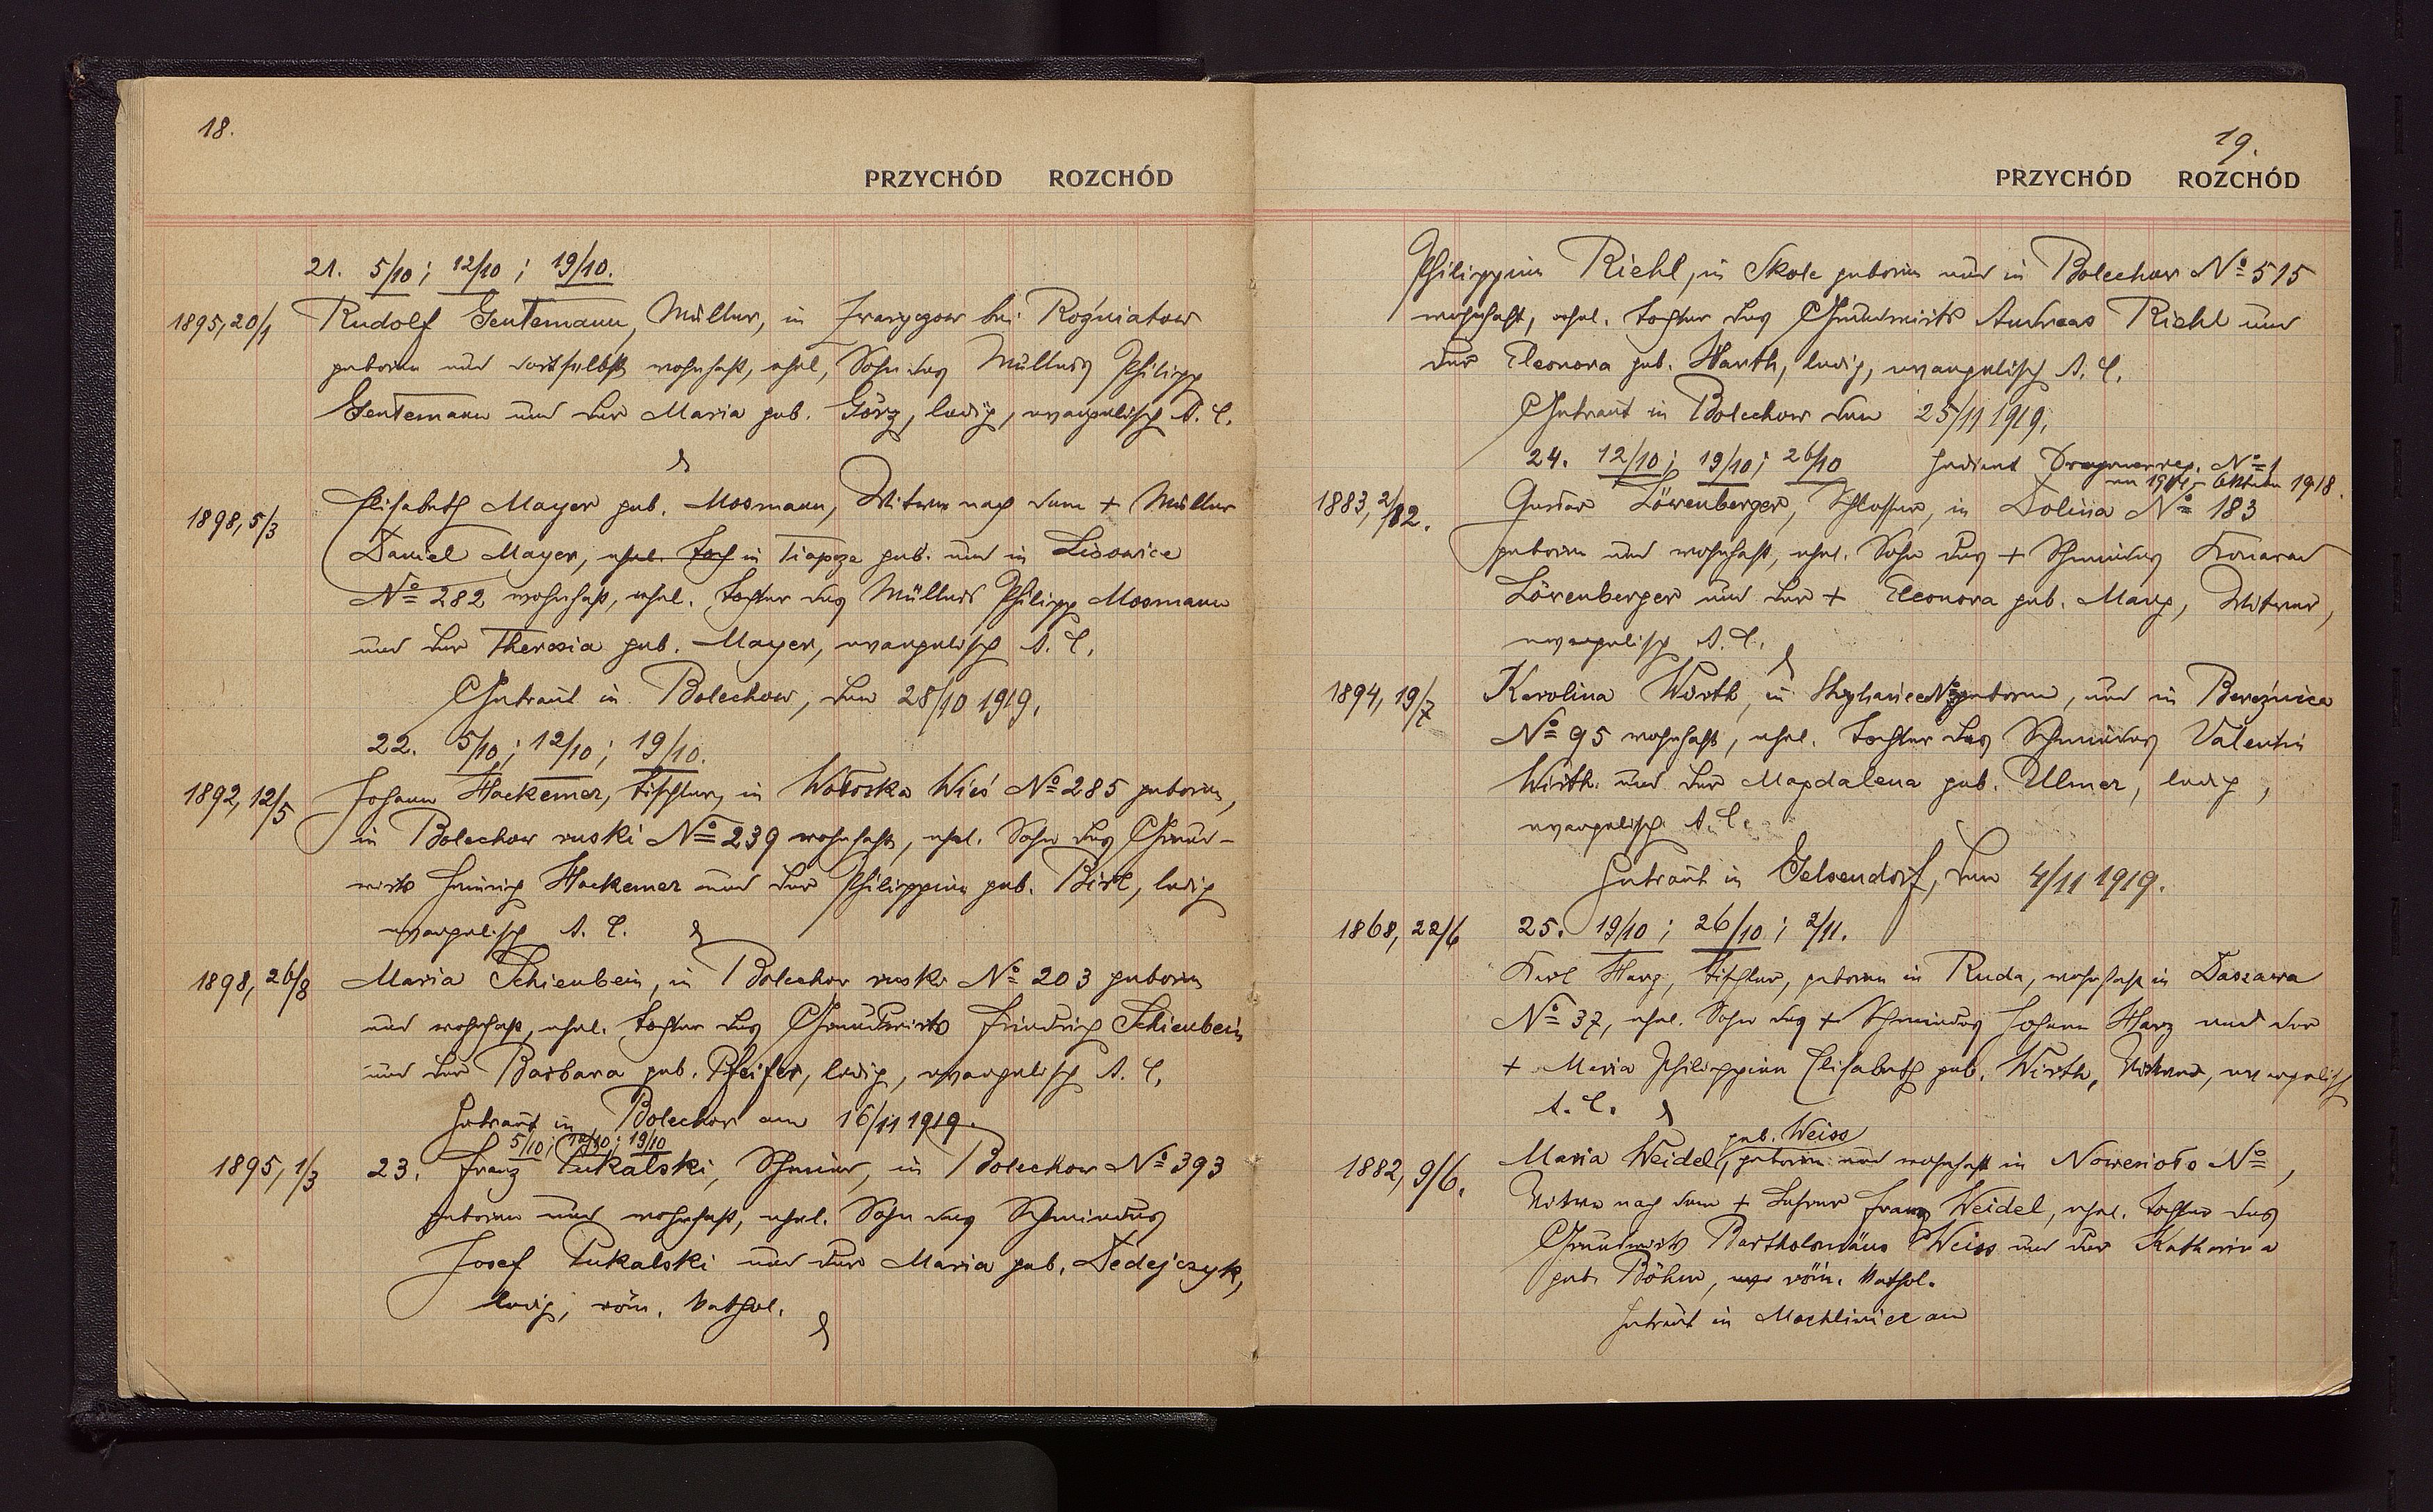 18.
PRZYCHÓD ROZCHÓD
21. 5/10; 12/10; 19/10.
1895, 20/1 Rudolf Gentemann, Müller, in bei Rożniatow
geboren und dortselbst wohnhaft, ehel. Sohn des Müllers Philipp
Gentemann und der Maria geb. Görz, ledig, evangelisch A. C.
&
1898, 5/3 Elisabeth Mayer geb. Mosmann, Witwe nach dem + Müller
Daniel Mayer, ehel. Toch in geb. und in Lisowice
Nº 282 wohnhaft, ehel. Tochter des Müllers Philipp Mosmann
und der Theresia geb. Mayer, evangelisch A. C.
Getraut in Bolechow, den 28/10 1919.
22. 5/10; 12/10; 19/10.
1892, 12/5 Johann Hackemer, Tischler, in Wołoska Wieś Nº 285 geboren,
in Bolechow ruski Nº 239 wohnhaft, ehel. Sohn des Grund-
wirts Heinrich Hackemer und der Philippine geb. Birl, ledig
evangelisch A. C. &
1898, 26/8 Maria Schienbein, in Bolechow ruski Nº 203 geboren
und wohnhaft, ehel. Tochter des Grundwirts Friedrich Schienbein
und der Barbara geb. Pfeifer, ledig, evangelisch A. C.
Getraut in Bolechow am 16/11 1919.
5/10; 12/10; 19/10
1895, 1/3 23. Franz Pukalski, Schmied, in Bolechow Nº 393
geboren und wohnhaft, ehel. Sohn des Schmiedes
Josef Pukalski und der Maria geb. Dedejczyk,
ledig, röm. kathol.
&
19.
PRZYCHÓD ROZCHÓD
Philippine Riehl, in Skole geboren und in Bolechow Nº 515
wohnhaft, ehel. Tochter des Grundwirts Andreas Riehl und
der Eleonora geb. Harth, ledig, evangelisch A. C.
Getraut in Bolechow den 25/11 1919.
24. 12/10; 19/10; 26/10 gedient Dragonerreg. Nº 1
Oktober 1918.
1883, 2/12. Gustav Löwenberger, Schlosser, in Dolina Nº 183
geboren und wohnhaft, ehel. Sohn des + Schmiedes Konarad
Löwenberger und der + Eleonora geb. Mang, Witwer,
evangelisch A. C. &
1894, 19/7 Karolina Wirth, in geboren, und in Bereźnica
Nº 95 wohnhaft, ehel. Tochter des Schmiedes Valentin
Wirth und der Magdalena geb. Ulmer, ledig,
evangelisch A. C.
Getraut in Gelsendorf, den 4/11 1919.
1868, 22/6 25. 19/10; 26/10; 2/11.
Karl Harz, Tischler, geboren in Ruda, wohnhaft in Daszawa
Nº 37, ehel. Sohn des + Schmiedes Johann Harz und der
+ Maria Philippine Elisabeth geb. Wirth, Witwer, evangelisch
A. C. &
geb. Weiss
1882, 9/6. Maria Weidel, geboren und wohnhaft in Nowesioło Nº ,
Witwe nach dem + Lehrer Franz Weidel, ehel. Tochter des
Grundwirts Bartholomäus Weiss und der Katharina
geb. Böhm, röm. kathol.
Getraut in Machliniec am